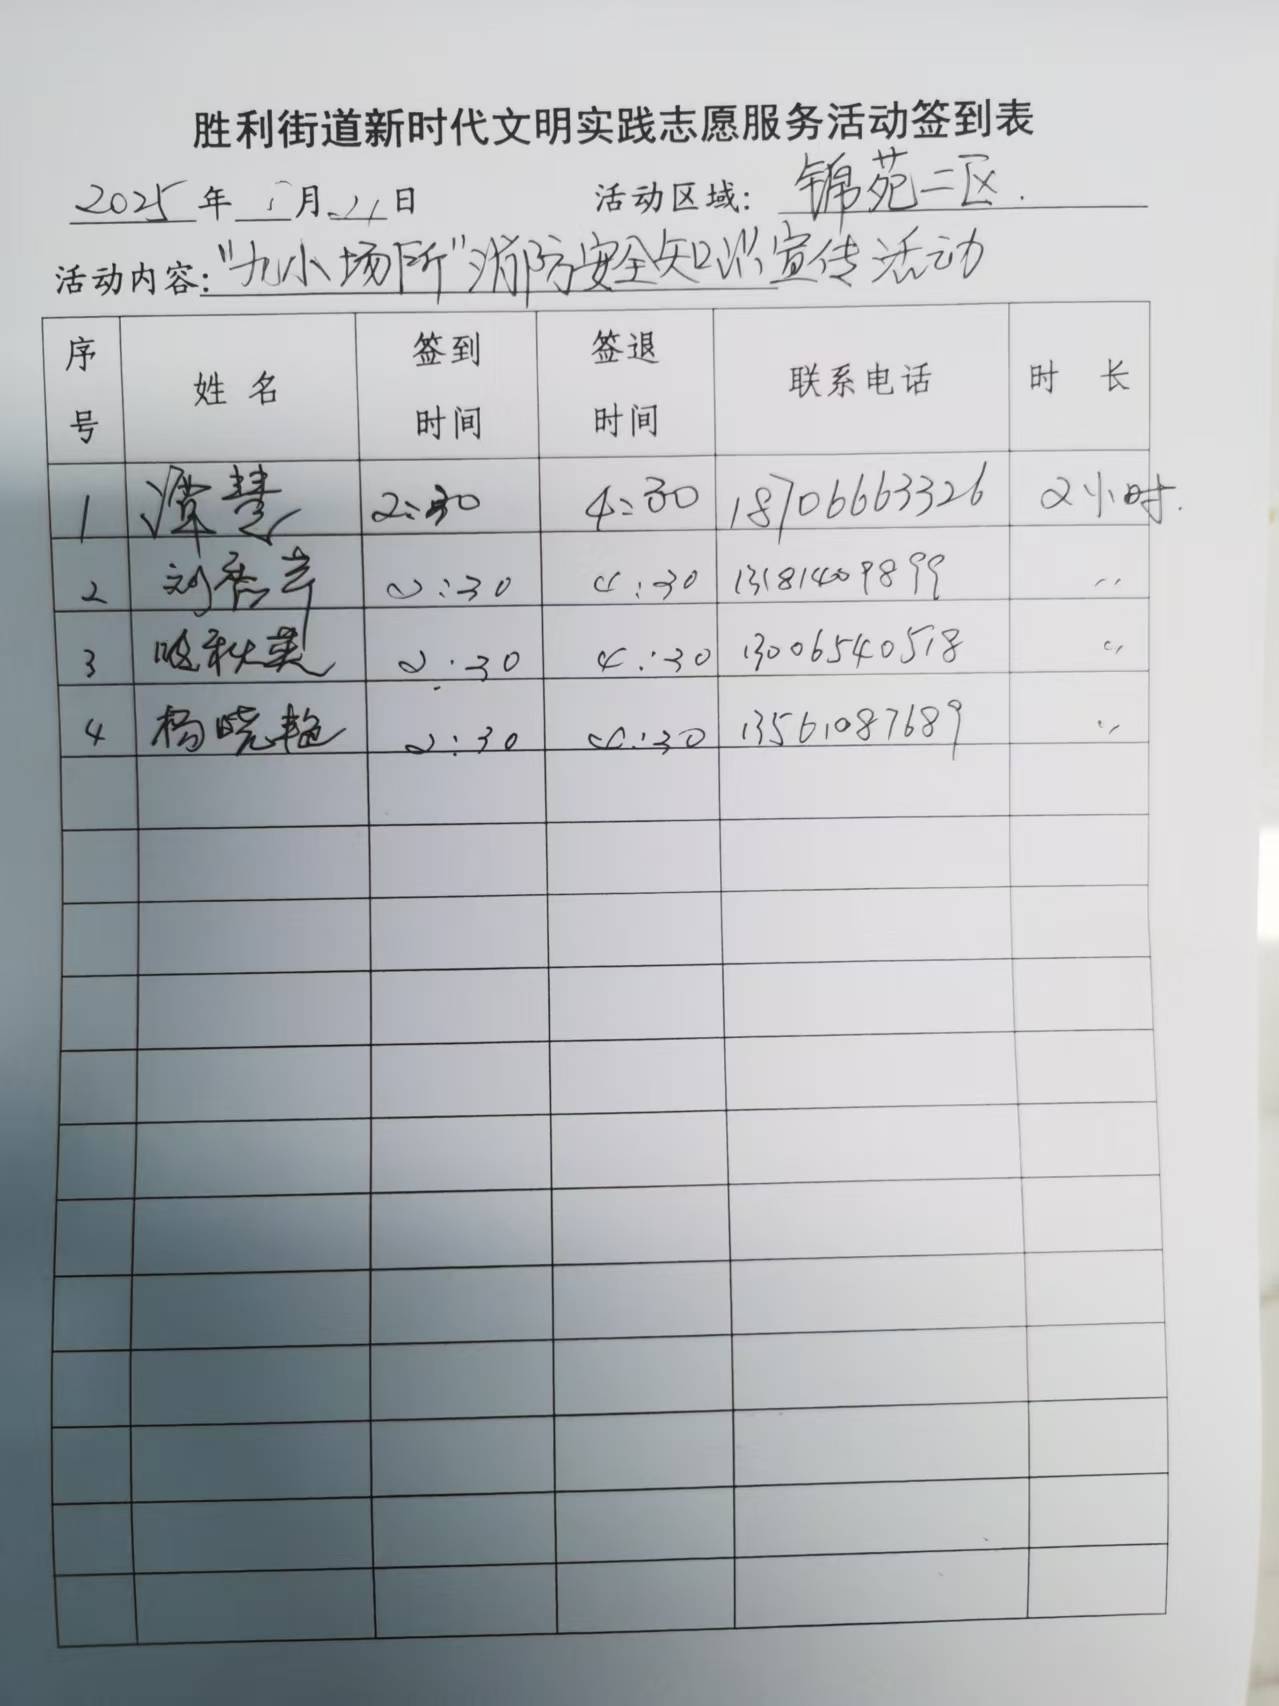 胜利街道新时代文明实践志愿服务活动签到表
2025年 月21日 活动区域：锦苑二区.
活动内容："九小场所"消防安全知识宣传活动
序号 姓名 签到时间 签退时间 联系电话 时长
1 慧 2:30 4:30 18706663326 2小时.
2 刘 2:30 4:30 13181409899 〃
3 秋英 2:30 4:30 13006540518 〃
4 杨晓艳 2:30 4:30 13561087689 〃